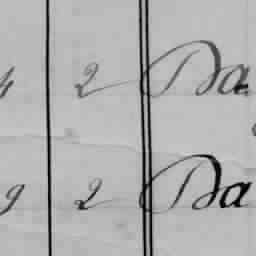 4 2 Da
9 2 Da